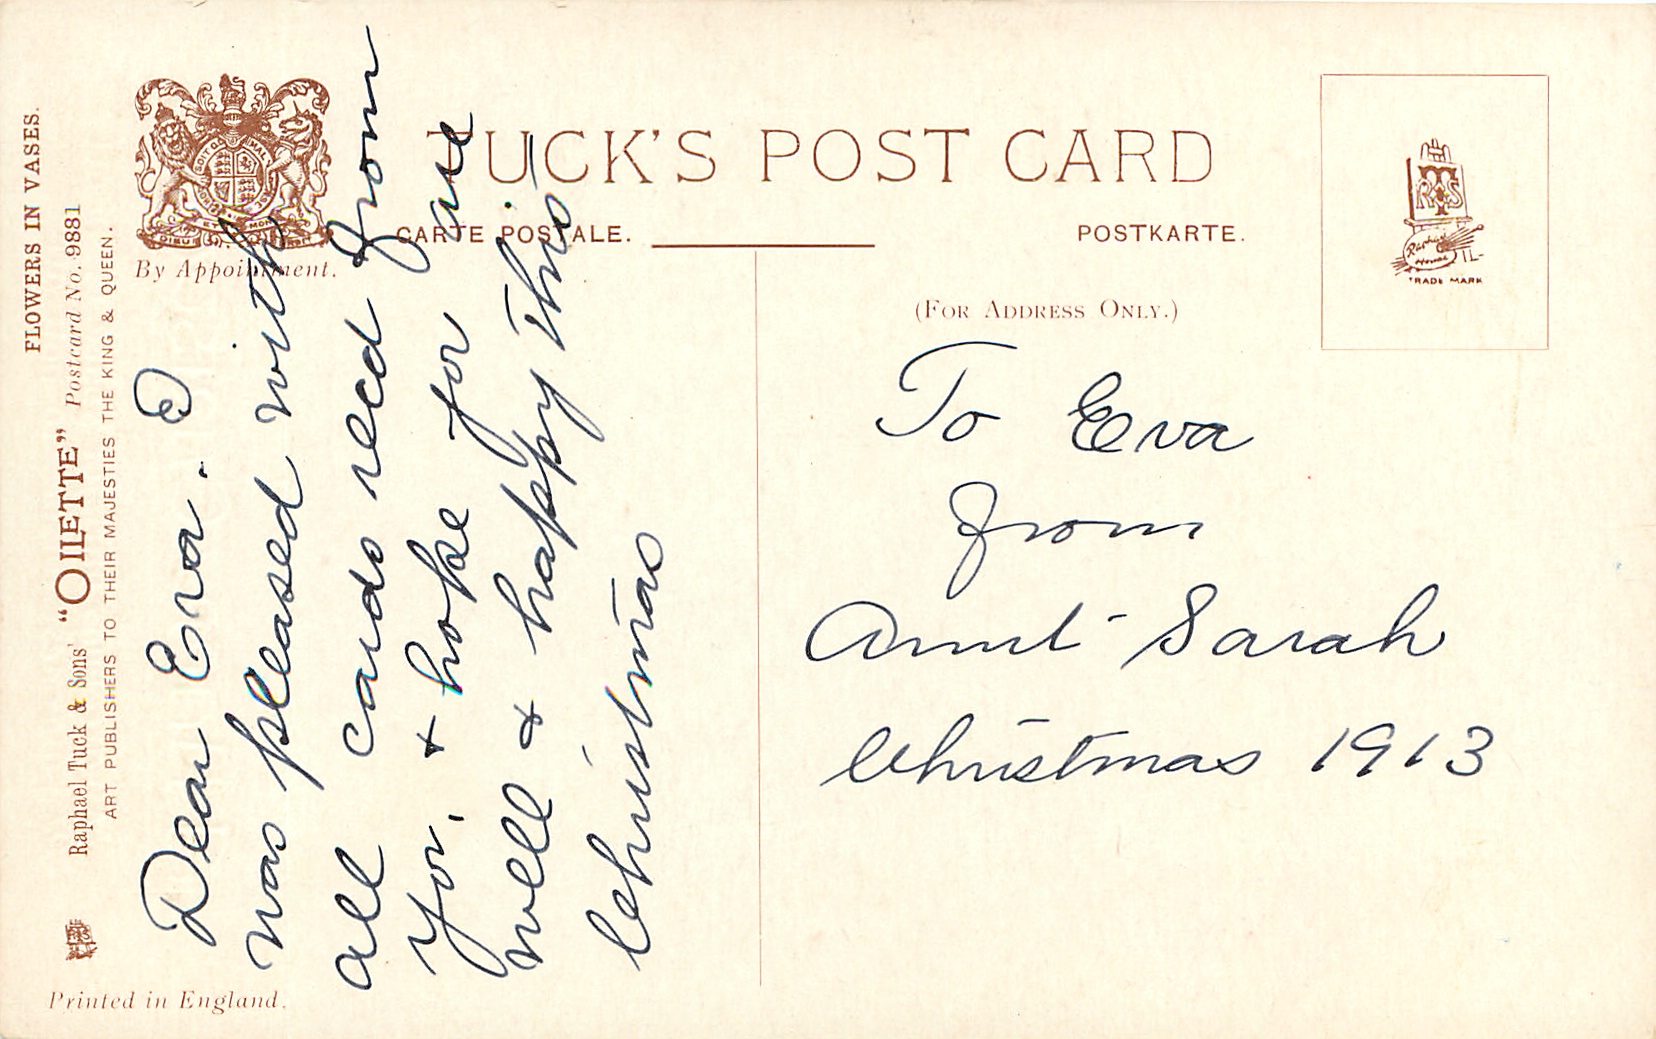 FLOWERS IN VASES.
Raphael Tuck & Sons' "OILETTE" Postcard No. 9881
ART PUBLISHERS TO THEIR MAJESTIES THE KING & QUEEN.
By Appointment.
Printed in England.
TUCK'S POST CARD
CARTE POSTALE.
POSTKARTE.
(FOR ADDRESS ONLY.)
TRADE MARK
Dear Eva. I
was pleased with
all cards recd from
you. & hope you are
well & happy This
Christmas
To Eva
from
Aunt Sarah
Christmas 1913